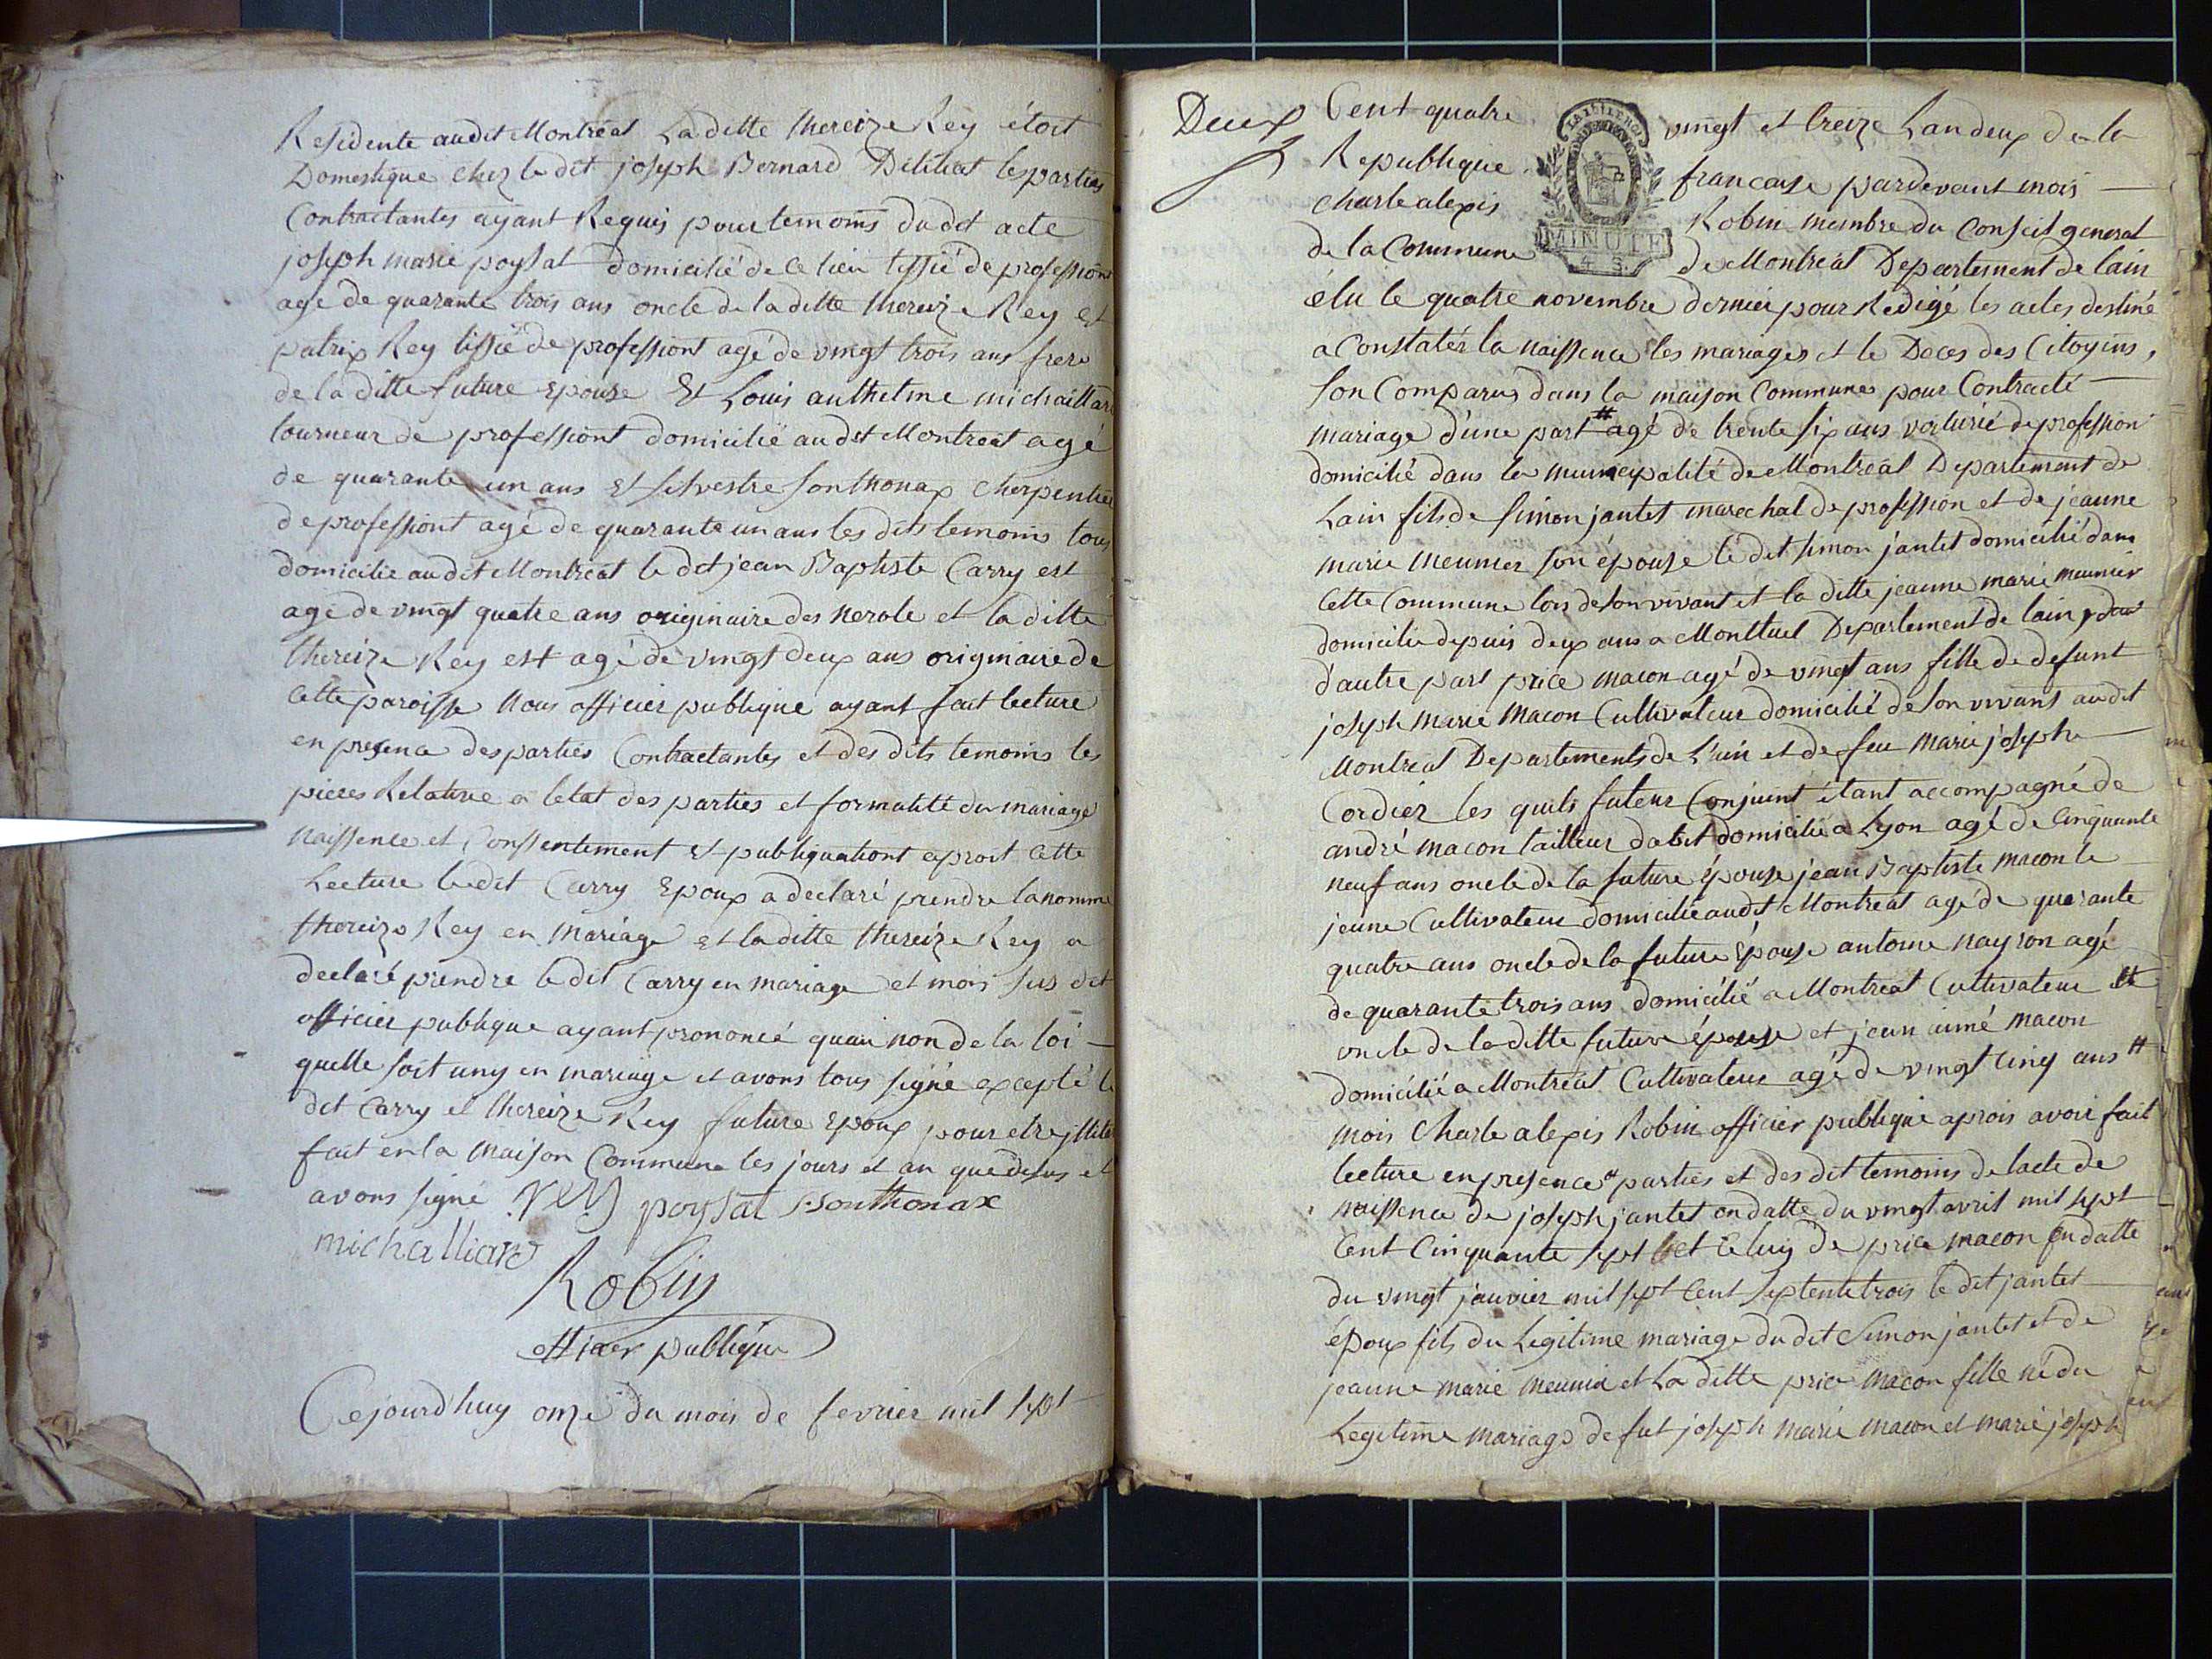 Residente audit Montréal Laditte thereize Rey étoit
Domestique chez le dit joseph Bernard Delilia les parties
Contractantes ayant Requis pour temoins dudit acte
joseph marie poysat domicilié de ce lieu tissié de professiont
agé de quarante trois ans oncle de la ditte thereize Rey et
patrix Rey tissié de professiont agé de vingt trois ans frere
de la ditte future Epouse Et Louis anthelme michaillard
tourneur de professiont domicilié audit Montréal agé
de quarante un ans Et silvestre sonthonax cherpentier
de professiont agé de quarante un ans les dits temoins tous
domicilié audit Montréal le dit jean Baptiste Carry est
agé de vingt quatre ans originaire des nerole et la ditte
thereize Rey est agé de vingt deux ans originaire de
cette paroisse Nous officier publique ayant fait lecture
en presence des parties Contractantes et des dits temoins les
pieces Relative a letat des parties et formalitté du mariage
Naissence et Consentement Et publiquationt aproit cette
Lecture ledit Carry Epoux a declaré prendre la nommé
thereize Rey en Mariage et la ditte thereize Rey a
declaré prendre le dit Carry en mariage et mois sus dit
officier publique ayant prononcé quau non de la loi
quelle soit uny en mariage et avons tous signé excepté le
dit Carry et thereize Rey future Epoux pour etre
fait en la Maison Commune les jours et an que desus et
avons signé REY poysat S. Sonthonax
michalliard
Robin
officier publique
Cejourd'huy onze du mois de fevrier mil sept
Deux
Cent quatre vingt et treize Lan deux de la
Republique francaise pardevant mois
Charle alexis Robin membre du Conseil general
MINUTE
4 S.
de la Commune de Montréal Departement de lain
élu le quatre novembre dernier pour Redigé les actes destiné
a Constatér la naissence les mariages et le Deces des Citoyens,
son Comparus dans la maison Commune pour Contracté
mariage d'une part # agé de trente six ans voiturié de profession
domicilié dans la municepalité de Montréal Departement de
Lain fils de simon jantet marechal de profession et de jeanne
marie meunier son épouse le dit simon jantet domicilié dans
cette Commune lors de son vivant et la ditte jeanne marie meunier
domicilié depuis deux ans a Montluel Departement de lain
d'autre part price macon agé de vingt ans fille de defunt
joseph marie Macon Cultivateur domicilié de son vivant audit
Montréal Departements de L'ain et de feu marie joseph
Cordier les quels futeur Conjuint étant accompagné de
andré macon tailleur dabit domicilié a Lyon agé de Cinquante
neuf ans oncle de la future épouse jean Baptiste macon le
jeune Cultivateur domicilié audit Montréal agé de quarante
quatre ans oncle de la future Epouse antoine nayron agé
de quarante trois ans domicilié a Montréal Cultivateur #
oncle de la ditte future épouse et jean aimé macon
domicilié a Montréal Cultivateur agé de vingt cinq ans #
mois Charle alexis Robin officier publique aprois avoir fait
lecture en presence # parties et des dit temoins de lacte de
naissence de joseph jantet en datte du vingt avril mil sept
Cent Cinquante sept et celuy de price macon en datte
du vingt janvier mil sept Cent septente trois le dit jantet
époux fils du Legitime mariage du dit Simon jantet et de
jeanne marie meunié et La ditte price macon fille né du
Legitime mariage de fut joseph marie macon et marie joseph